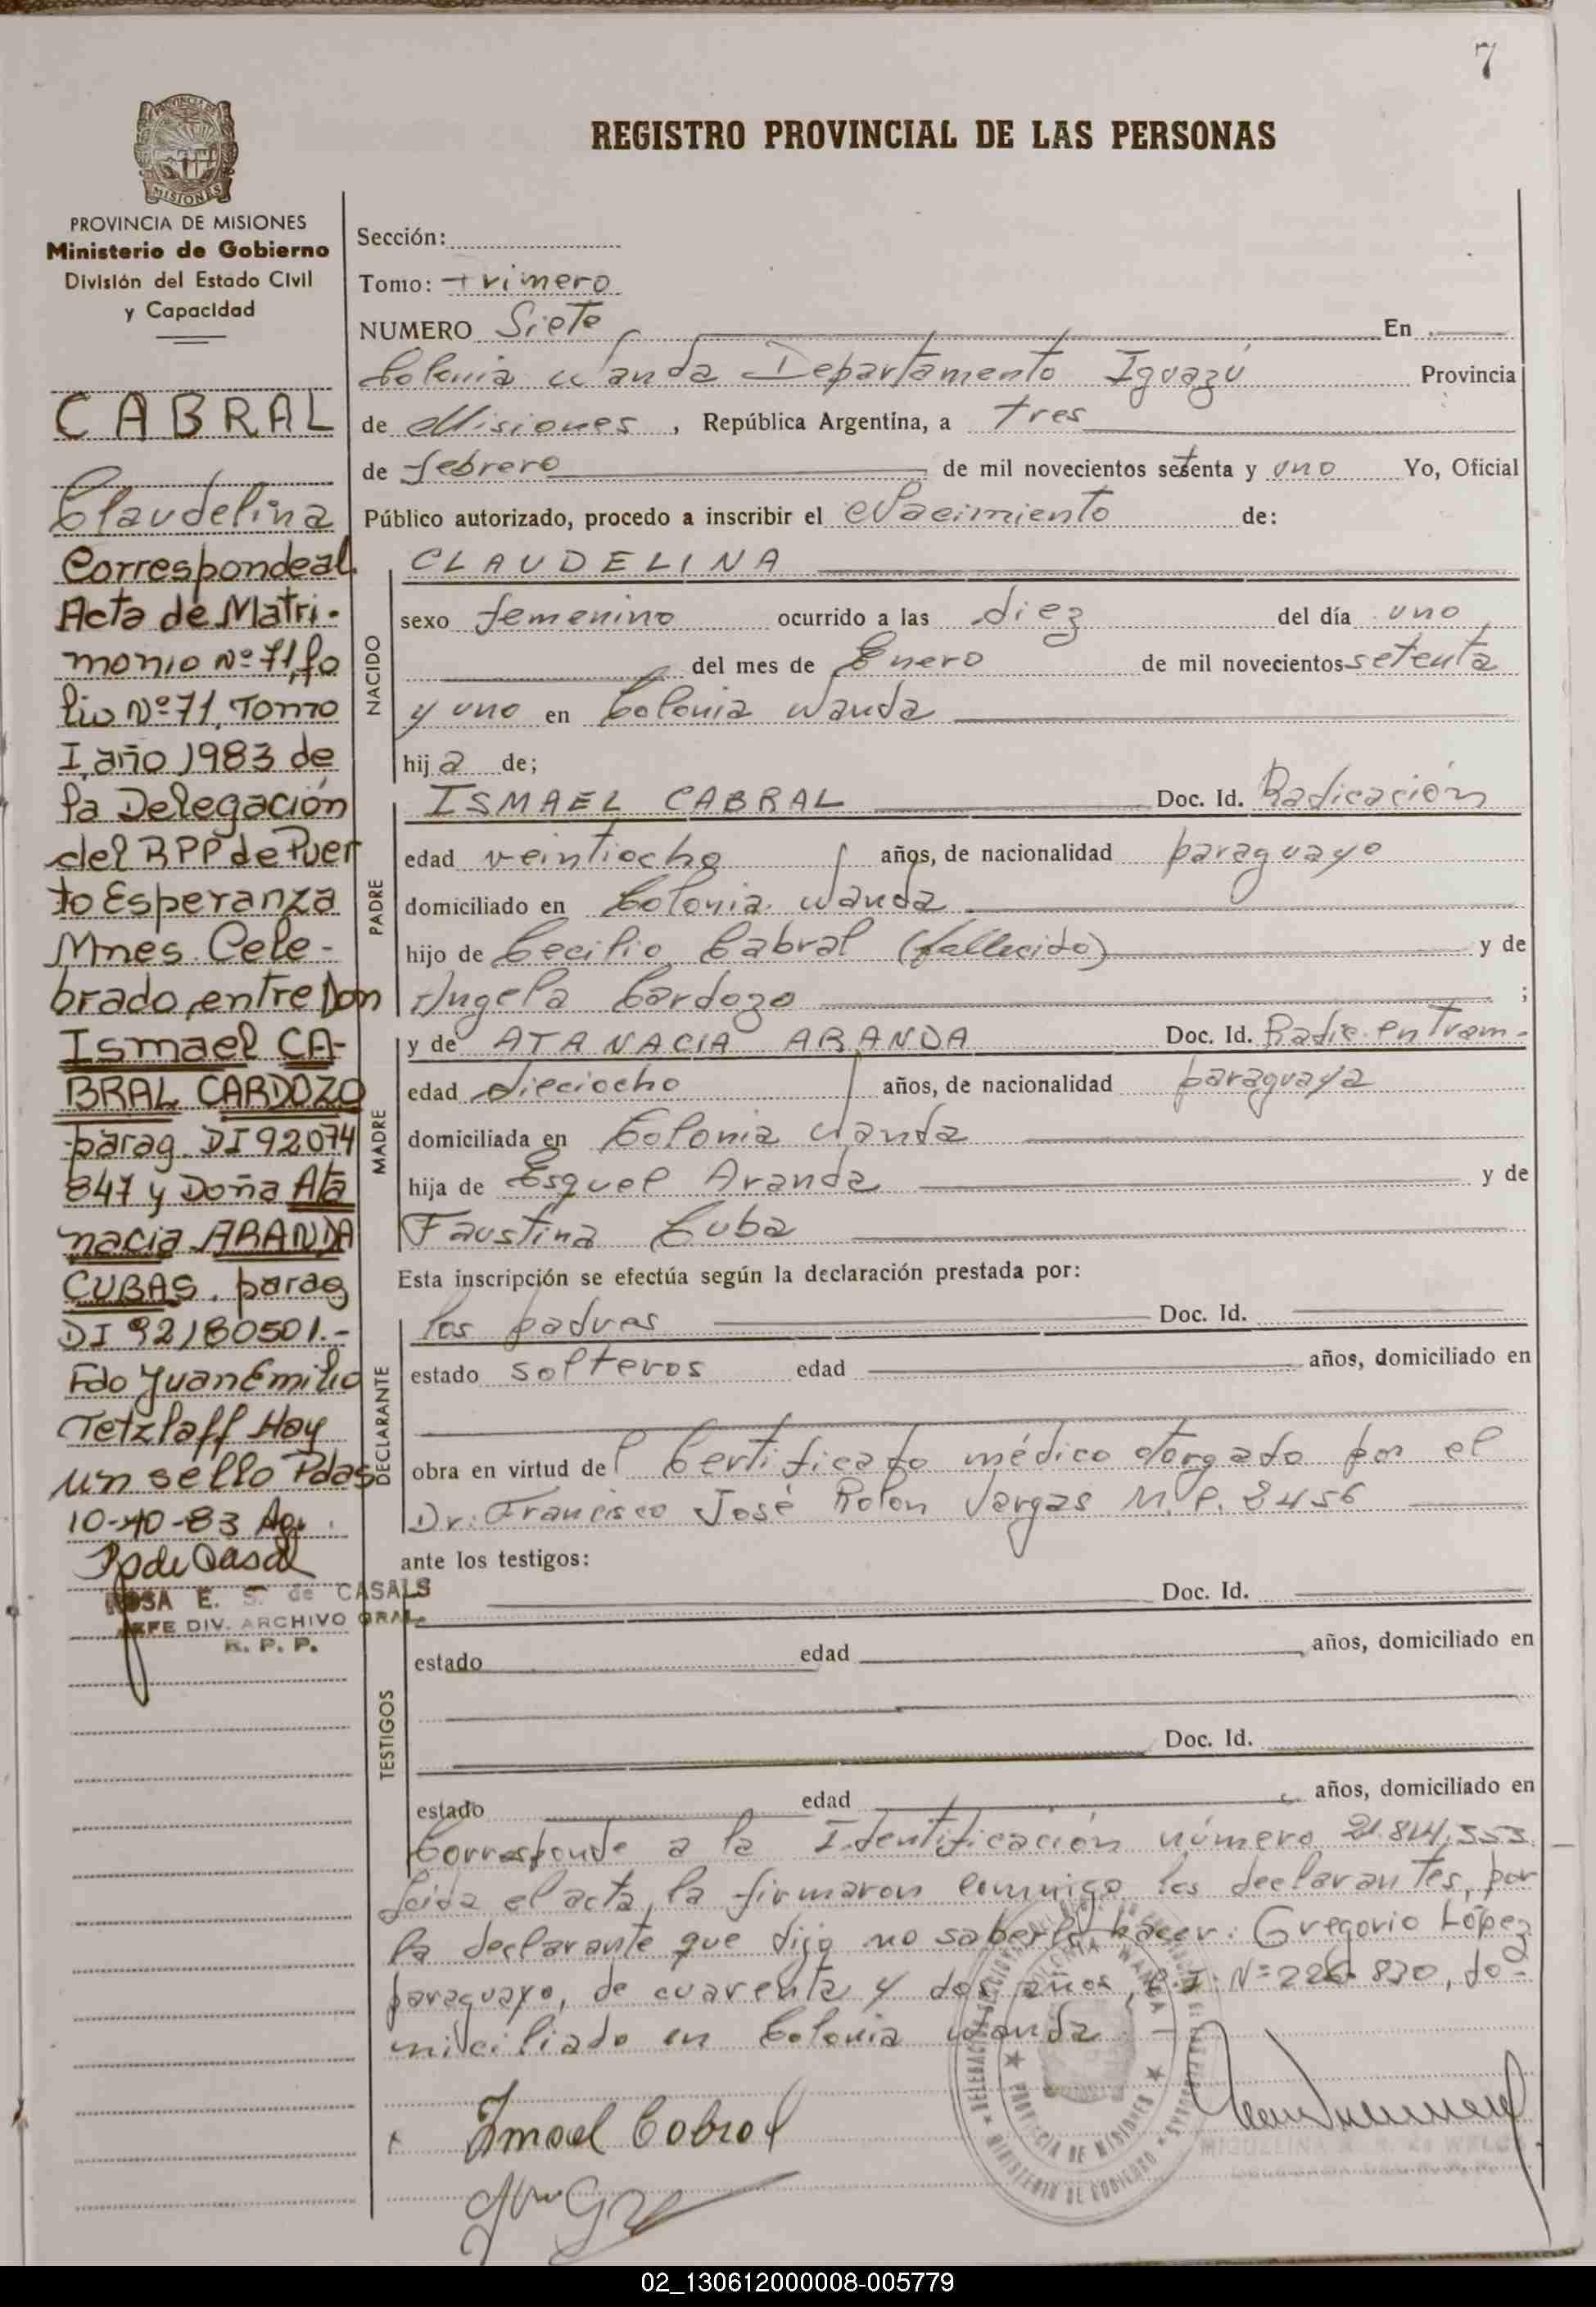 7
REGISTRO PROVINCIAL DE LAS PERSONAS
MISIONES
PROVINCIA DE MISIONES
Ministerio de Gobierno
División del Estado Civil
y Capacidad
CABRAL
Claudelina
Corresponde al
Acta de Matri-
monio Nº 71, fo
lio Nº 71, Tomo
I, año 1983 de
la Delegación
del RPP de Puer
to Esperanza
Mnes. Cele-
brado, entre Don
Ismael CA-
BRAL CARDOZO
parag. DI 92074
847 y Doña Ata
nacia ARANDA
CUBAS. parag
DI 92180501.-
Fdo Juan Emilio
Tetzlaff Hay
un sello Pdas
10-10-83
ROSA E. S. de CASALS
JEFE DIV. ARCHIVO GRAL.
R. P. P.
Sección:
Tomo: Primero
NUMERO Siete En
Colonia Wanda Departamento Iguazú Provincia
de Misiones, República Argentina, a tres
de febrero de mil novecientos setenta y uno Yo, Oficial
Público autorizado, procedo a inscribir el Nacimiento de:
CLAUDELINA
NACIDO
sexo femenino ocurrido a las diez del día uno
del mes de Enero de mil novecientos setenta
y uno en Colonia Wanda
hija de;
PADRE
ISMAEL CABRAL Doc. Id. Radicación
edad veintiocho años, de nacionalidad paraguayo
domiciliado en Colonia Wanda
hijo de Cecilio Cabral (fallecido) y de
Angela Cardozo ;
MADRE
y de ATANACIA ARANDA Doc. Id. Radic. en Tram.
edad dieciocho años, de nacionalidad paraguaya
domiciliada en Colonia Wanda
hija de Esquel Aranda y de
Faustina Cuba
Esta inscripción se efectúa según la declaración prestada por:
DECLARANTE
los padres Doc. Id.
estado solteros edad años, domiciliado en
obra en virtud del Certificado médico otorgado por el
Dr: Francisco José Rolon Vargas M.P. 2456
ante los testigos:
TESTIGOS
Doc. Id.
estado edad años, domiciliado en
Doc. Id.
estado edad años, domiciliado en
Corresponde a la Identificación número 21.814.353
Leida el acta, la firmaron conmigo los declarantes, por
la declarante que dijo no saberlo hacer: Gregorio López
paraguayo, de cuarenta y dos años, C.I. Nº 226.830, do-
miciliado en Colonia Wanda
Ismael Cabral
PROVINCIA DE MISIONES
MINISTERIO DE GOBIERNO
02_130612000008-005779